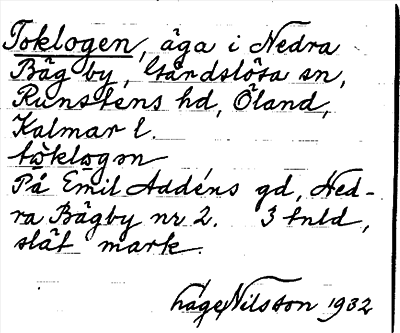 Toklogen, äga i Nedra
Bägby, Gårdslösa sn,
Runstens hd, Öland,
Kalmar l.
På Emil Addéns gd, Ned-
ra Bägby nr 2. 3 tnld,
slät mark.
Håge Nilsson 1932